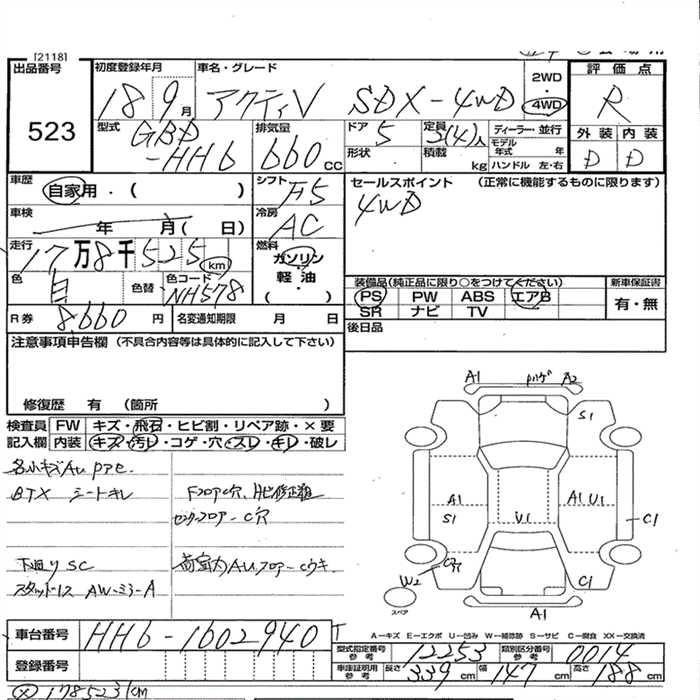 [2118]
出品番号
523
初度登録年月
18 9月
車名・グレード
アクティV SDX-4WD
2WD
・
4WD
評価点
R
型式
GBD
-HH6
排気量
660 cc
ドア 5
形状
定員 2(4)人
積載 kg
ディーラー・並行
モデル年式 年
ハンドル 左・右
外装 内装
D D
車歴
自家用・( )
シフト F5
セールスポイント (正常に機能するものに限ります)
4WD
車検
年 月( 日)
冷房 AC
走行
17万8千525 km
燃料
ガソリン
軽油
( )
色 白
色替
色コード
NH578
装備品(純正品に限り○をつけてください)
新車保証書
PS PW ABS エアB
SR ナビ TV
有・無
R券 8,660 円
名変通知期限 月 日
後日品
注意事項申告欄 (不具合内容等は具体的に記入して下さい)
修復歴 有 (箇所 )
検査員 FW キズ・飛石・ヒビ割・リペア跡・×要
記入欄 内装 キズ・汚レ・コゲ・穴・スレ・キレ・破レ
シートキレ
下廻りSC
スタッドレス AW-ミラーA
A1 A2
S1
A1 A1 U1
S1 V1 C1
C穴
W2
スペア
C1
A1
A-キズ E-エクボ U-凹み W-補修跡 S-サビ C-腐食 XX-交換済
車台番号 HH6-1602940
登録番号
型式指定番号 参考 12253
類別区分番号 参考 0014
車庫証明用 参考 長さ 339 cm 幅 147 cm 高さ 188 cm
178523km